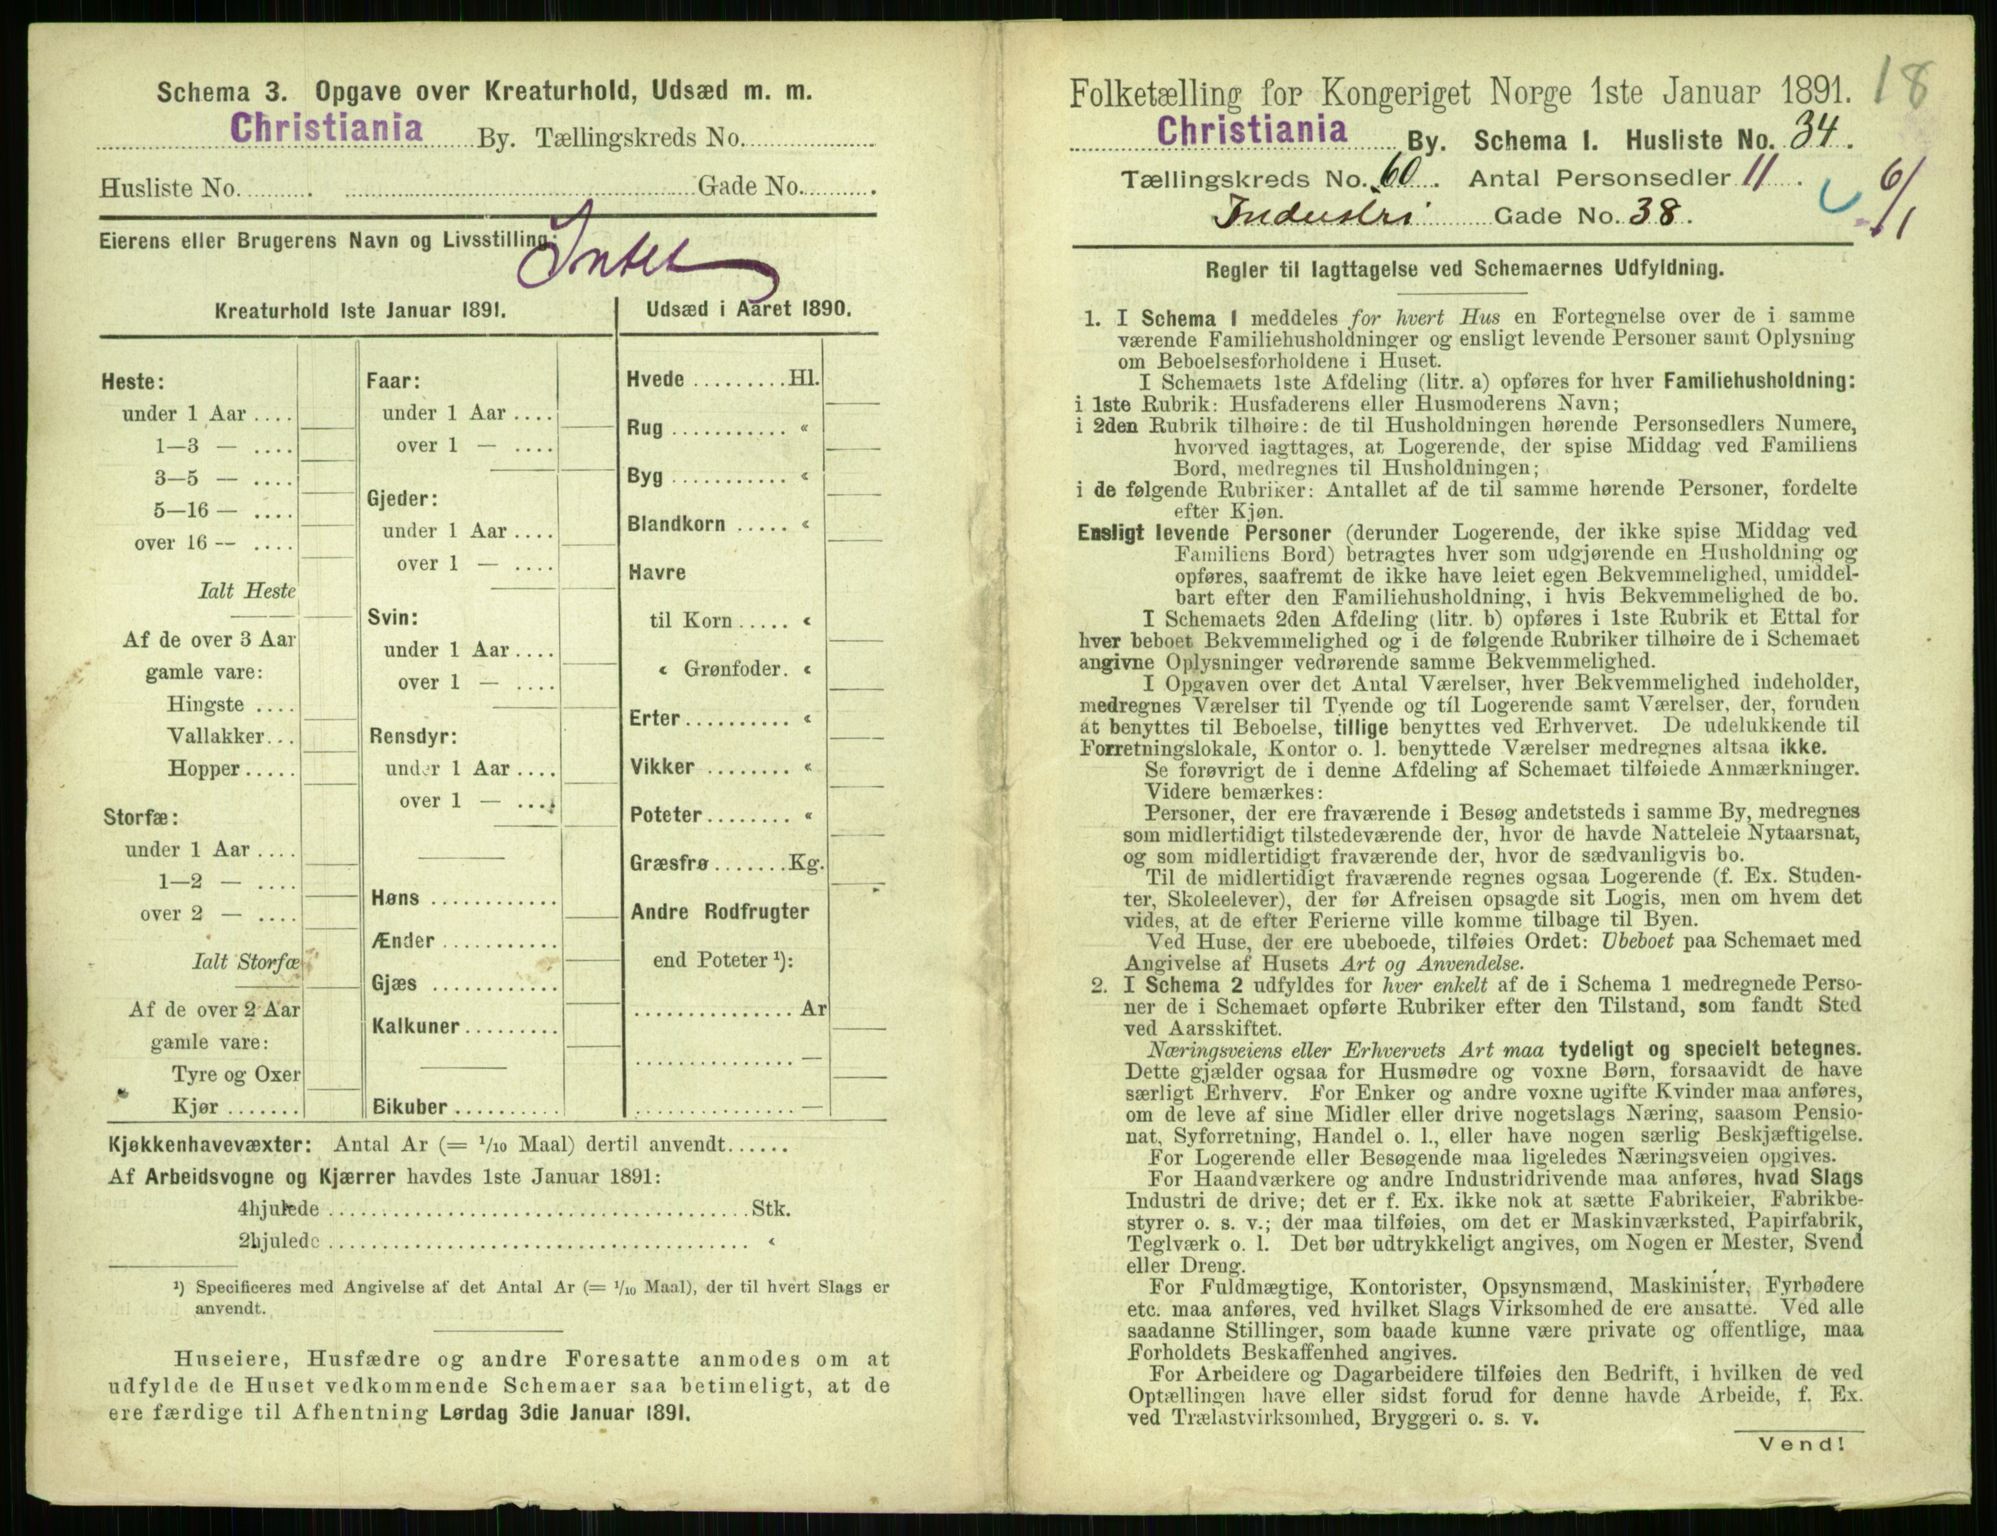 Schema 3. Opgave over Kreaturhold, Udsæd m. m.
Christiania By. Tællingskreds No.
Husliste No. Gade No.
Eierens eller Brugerens Navn og Livsstilling:
Intet
Kreaturhold 1ste Januar 1891.
Heste:
under 1 Aar ....
1—3 — ....
3—5 — ....
5—16 — ....
over 16 — ....
Ialt Heste
Af de over 3 Aar
gamle vare:
Hingste ....
Vallakker...
Hopper.....
Storfæ:
under 1 Aar ....
1—2 — ....
over 2 — ....
Ialt Storfæ
Af de over 2 Aar
gamle vare:
Tyre og Oxer
Kjør .......
Faar:
under 1 Aar ....
over 1 — ....
Gjeder:
under 1 Aar ....
over 1 — ....
Svin:
under 1 Aar ....
over 1 — ....
Rensdyr:
under 1 Aar ....
over 1 — ....
Høns ............
Ænder ...........
Gjæs ............
Kalkuner.........
Bikuber ..........
Udsæd i Aaret 1890.
Hvede .........Hl.
Rug ........... «
Byg ........... «
Blandkorn ..... «
Havre
til Korn ..... «
« Grønfoder. «
Erter.......... «
Vikker ........ «
Poteter........ «
Græsfrø .......Kg.
Andre Rodfrugter
end Poteter ¹):
...............Ar
............... —
............... —
Kjøkkenhavevæxter: Antal Ar (= 1/10 Maal) dertil anvendt......
Af Arbeidsvogne og Kjærrer havdes 1ste Januar 1891:
4hjulede ...................................... Stk.
2hjulede ...................................... «
¹) Specificeres med Angivelse af det Antal Ar (= 1/10 Maal), der til hvert Slags er
anvendt.
Huseiere, Husfædre og andre Foresatte anmodes om at
udfylde de Huset vedkommende Schemaer saa betimeligt, at de
ere færdige til Afhentning Lørdag 3die Januar 1891.
18
Folketælling for Kongeriget Norge 1ste Januar 1891.
Christiania By. Schema I. Husliste No. 34.
Tællingskreds No. 60. Antal Personsedler 11.
6/1
Industri Gade No. 38.
Regler til Iagttagelse ved Schemaernes Udfyldning.
1. I Schema 1 meddeles for hvert Hus en Fortegnelse over de i samme
værende Familiehusholdninger og ensligt levende Personer samt Oplysning
om Beboelsesforholdene i Huset.
I Schemaets 1ste Afdeling (litr. a) opføres for hver Familiehusholdning:
i 1ste Rubrik: Husfaderens eller Husmoderens Navn;
i 2den Rubrik tilhøire: de til Husholdningen hørende Personsedlers Numere,
hvorved iagttages, at Logerende, der spise Middag ved Familiens
Bord, medregnes til Husholdningen;
i de følgende Rubriker: Antallet af de til samme hørende Personer, fordelte
efter Kjøn.
Ensligt levende Personer (derunder Logerende, der ikke spise Middag ved
Familiens Bord) betragtes hver som udgjørende en Husholdning og
opføres, saafremt de ikke have leiet egen Bekvemmelighed, umiddel-
bart efter den Familiehusholdning, i hvis Bekvemmelighed de bo.
I Schemaets 2den Afdeling (litr. b) opføres i 1ste Rubrik et Ettal for
hver beboet Bekvemmelighed og i de følgende Rubriker tilhøire de i Schemaet
angivne Oplysninger vedrørende samme Bekvemmelighed.
I Opgaven over det Antal Værelser, hver Bekvemmelighed indeholder,
medregnes Værelser til Tyende og til Logerende samt Værelser, der, foruden
at benyttes til Beboelse, tillige benyttes ved Erhvervet. De udelukkende til
Forretningslokale, Kontor o. l. benyttede Værelser medregnes altsaa ikke.
Se forøvrigt de i denne Afdeling af Schemaet tilføiede Anmærkninger.
Videre bemærkes:
Personer, der ere fraværende i Besøg andetsteds i samme By, medregnes
som midlertidigt tilstedeværende der, hvor de havde Natteleie Nytaarsnat,
og som midlertidigt fraværende der, hvor de sædvanligvis bo.
Til de midlertidigt fraværende regnes ogsaa Logerende (f. Ex. Studen-
ter, Skoleelever), der før Afreisen opsagde sit Logis, men om hvem det
vides, at de efter Ferierne ville komme tilbage til Byen.
Ved Huse, der ere ubeboede, tilføies Ordet: Ubeboet paa Schemaet med
Angivelse af Husets Art og Anvendelse.
2. I Schema 2 udfyldes for hver enkelt af de i Schema 1 medregnede Perso-
ner de i Schemaet opførte Rubriker efter den Tilstand, som fandt Sted
ved Aarsskiftet.
Næringsveiens eller Erhvervets Art maa tydeligt og specielt betegnes.
Dette gjælder ogsaa for Husmødre og voxne Børn, forsaavidt de have
særligt Erhverv. For Enker og andre voxne ugifte Kvinder maa anføres,
om de leve af sine Midler eller drive nogetslags Næring, saasom Pensio-
nat, Syforretning, Handel o. l., eller have nogen særlig Beskjæftigelse.
For Logerende eller Besøgende maa ligeledes Næringsveien opgives.
For Haandværkere og andre Industridrivende maa anføres, hvad Slags
Industri de drive; det er f. Ex. ikke nok at sætte Fabrikeier, Fabrikbe-
styrer o. s. v.; der maa tilføies, om det er Maskinværksted, Papirfabrik,
Teglværk o. l. Det bør udtrykkeligt angives, om Nogen er Mester, Svend
eller Dreng.
For Fuldmægtige, Kontorister, Opsynsmænd, Maskinister, Fyrbødere
etc. maa anføres, ved hvilket Slags Virksomhed de ere ansatte. Ved alle
saadanne Stillinger, som baade kunne være private og offentlige, maa
Forholdets Beskaffenhed angives.
For Arbeidere og Dagarbeidere tilføies den Bedrift, i hvilken de ved
Optællingen have eller sidst forud for denne havde Arbeide, f. Ex.
ved Trælastvirksomhed, Bryggeri o. s. v.
Vend!